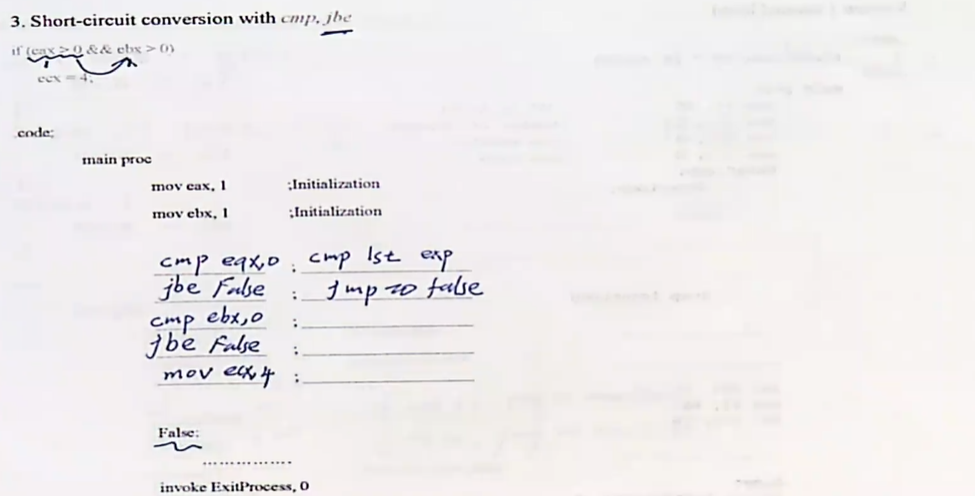 3. Short-circuit conversion with cmp, jbe
if (eax > 0 && ebx > 0)
ecx = 4;
.code;
main proc
mov eax, 1 ;Initialization
mov ebx, 1 ;Initialization
cmp eax,0 ; cmp 1st exp
jbe False ; Jmp to false
cmp ebx,0 ;
jbe False ;
mov ecx,4 ;
False:
...............
invoke ExitProcess, 0